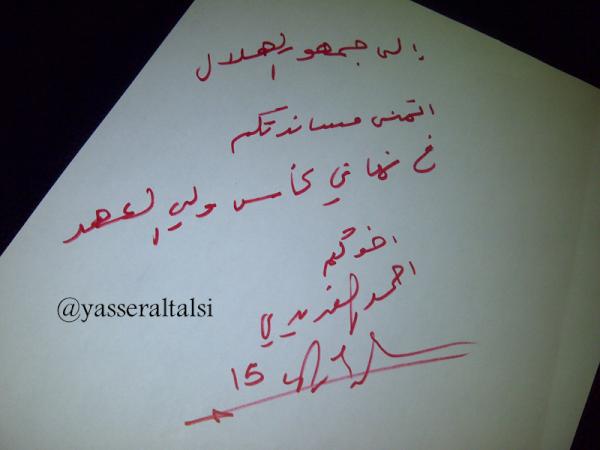 إلى جمهور الهلال
اتمنى مساندتكم
في نهائي كأس ولي العهد
اخوكم
احمد الفريدي
@yasseraltalsi
15